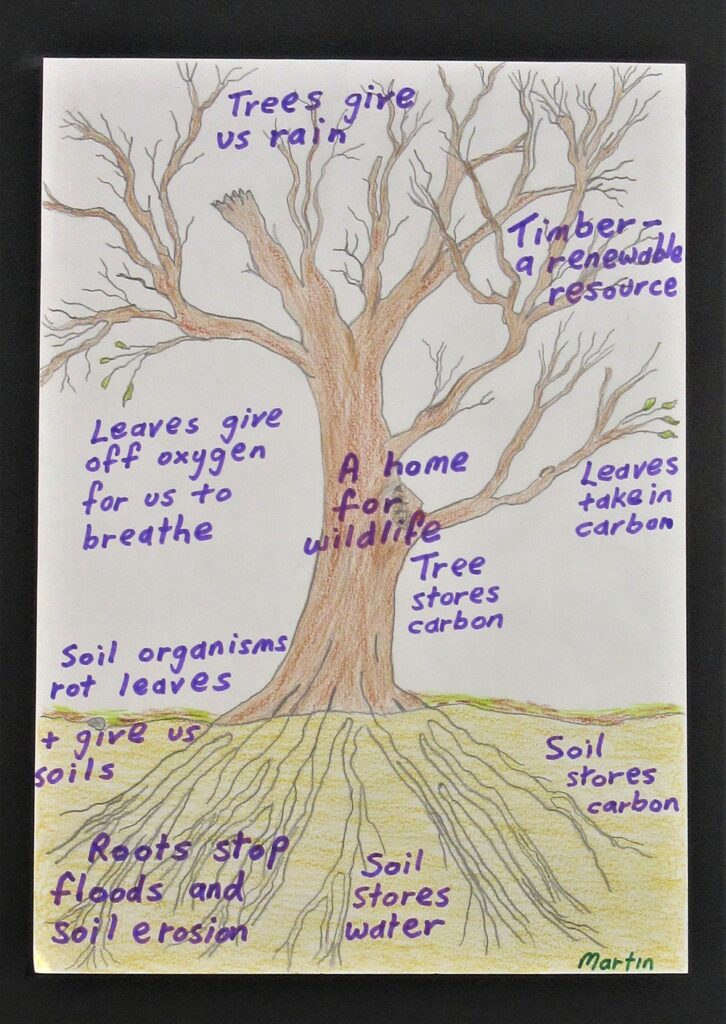 Trees give
us rain
Timber -
a renewable
resource
Leaves give
off oxygen
for us to
breathe
A home
for
wildlife
Leaves
take in
carbon
Tree
stores
carbon
Soil organisms
rot leaves
+ give us
soils
Soil
stores
carbon
Roots stop
floods and
soil erosion
Soil
stores
water
Martin